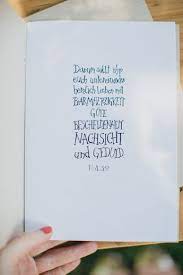 Darum sollt ihr
euch untereinander
herzlich lieben mit
BARMHERZIGKEIT
GÜTE
BESCHEIDENHEIT
NACHSICHT
und GEDULD.